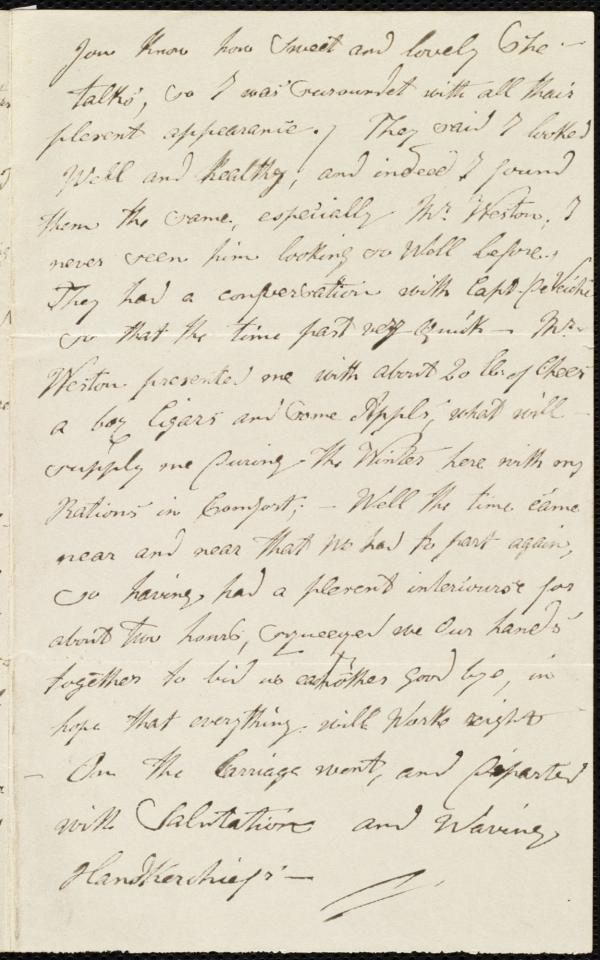 You Know how Sweet and lovely She —
talks, so I was surounded with all thair
plesent appearance. They said I looked
Well and healthy, and indeed I found
them the same, especially Mr. Weston, I
never seen him looking so Well before.,
They had a conversation with Capt.
so that the time past very Quick — Mr.
Weston presented me with about 20 lb. of Chees
a box Cigars and Some Appls, what will —
supply me During the Winter here with my
Rations in Comfort; — Well the time came
near and near that we had to part again,
so having had a plesent intercourse for
about two hours, squeezed we Our hands
together to bid us eachother good bye, in
hope that everything will Work right
— On the Carriage went, and Departed
with Salutation and Waving
Handkerchiefs —